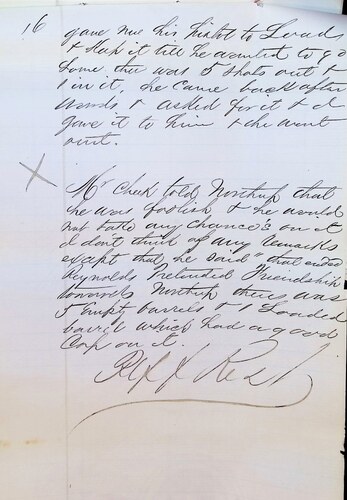 16
gave me his Pistol to Load
& Keep it till he wanted to go
home there was 5 shots out &
1 in it, he came back after
wards & asked for it & I
gave it to him & he went
out.
X
Mr Cheek told Northup that
he was foolish & he would
not take any chances on it
I don't think of any remarks
except that he said "that
Reynolds Pretended Friendship
towards Northup there was
5 Empty barrels & 1 Loaded
barrel which had a good
Cap on it.